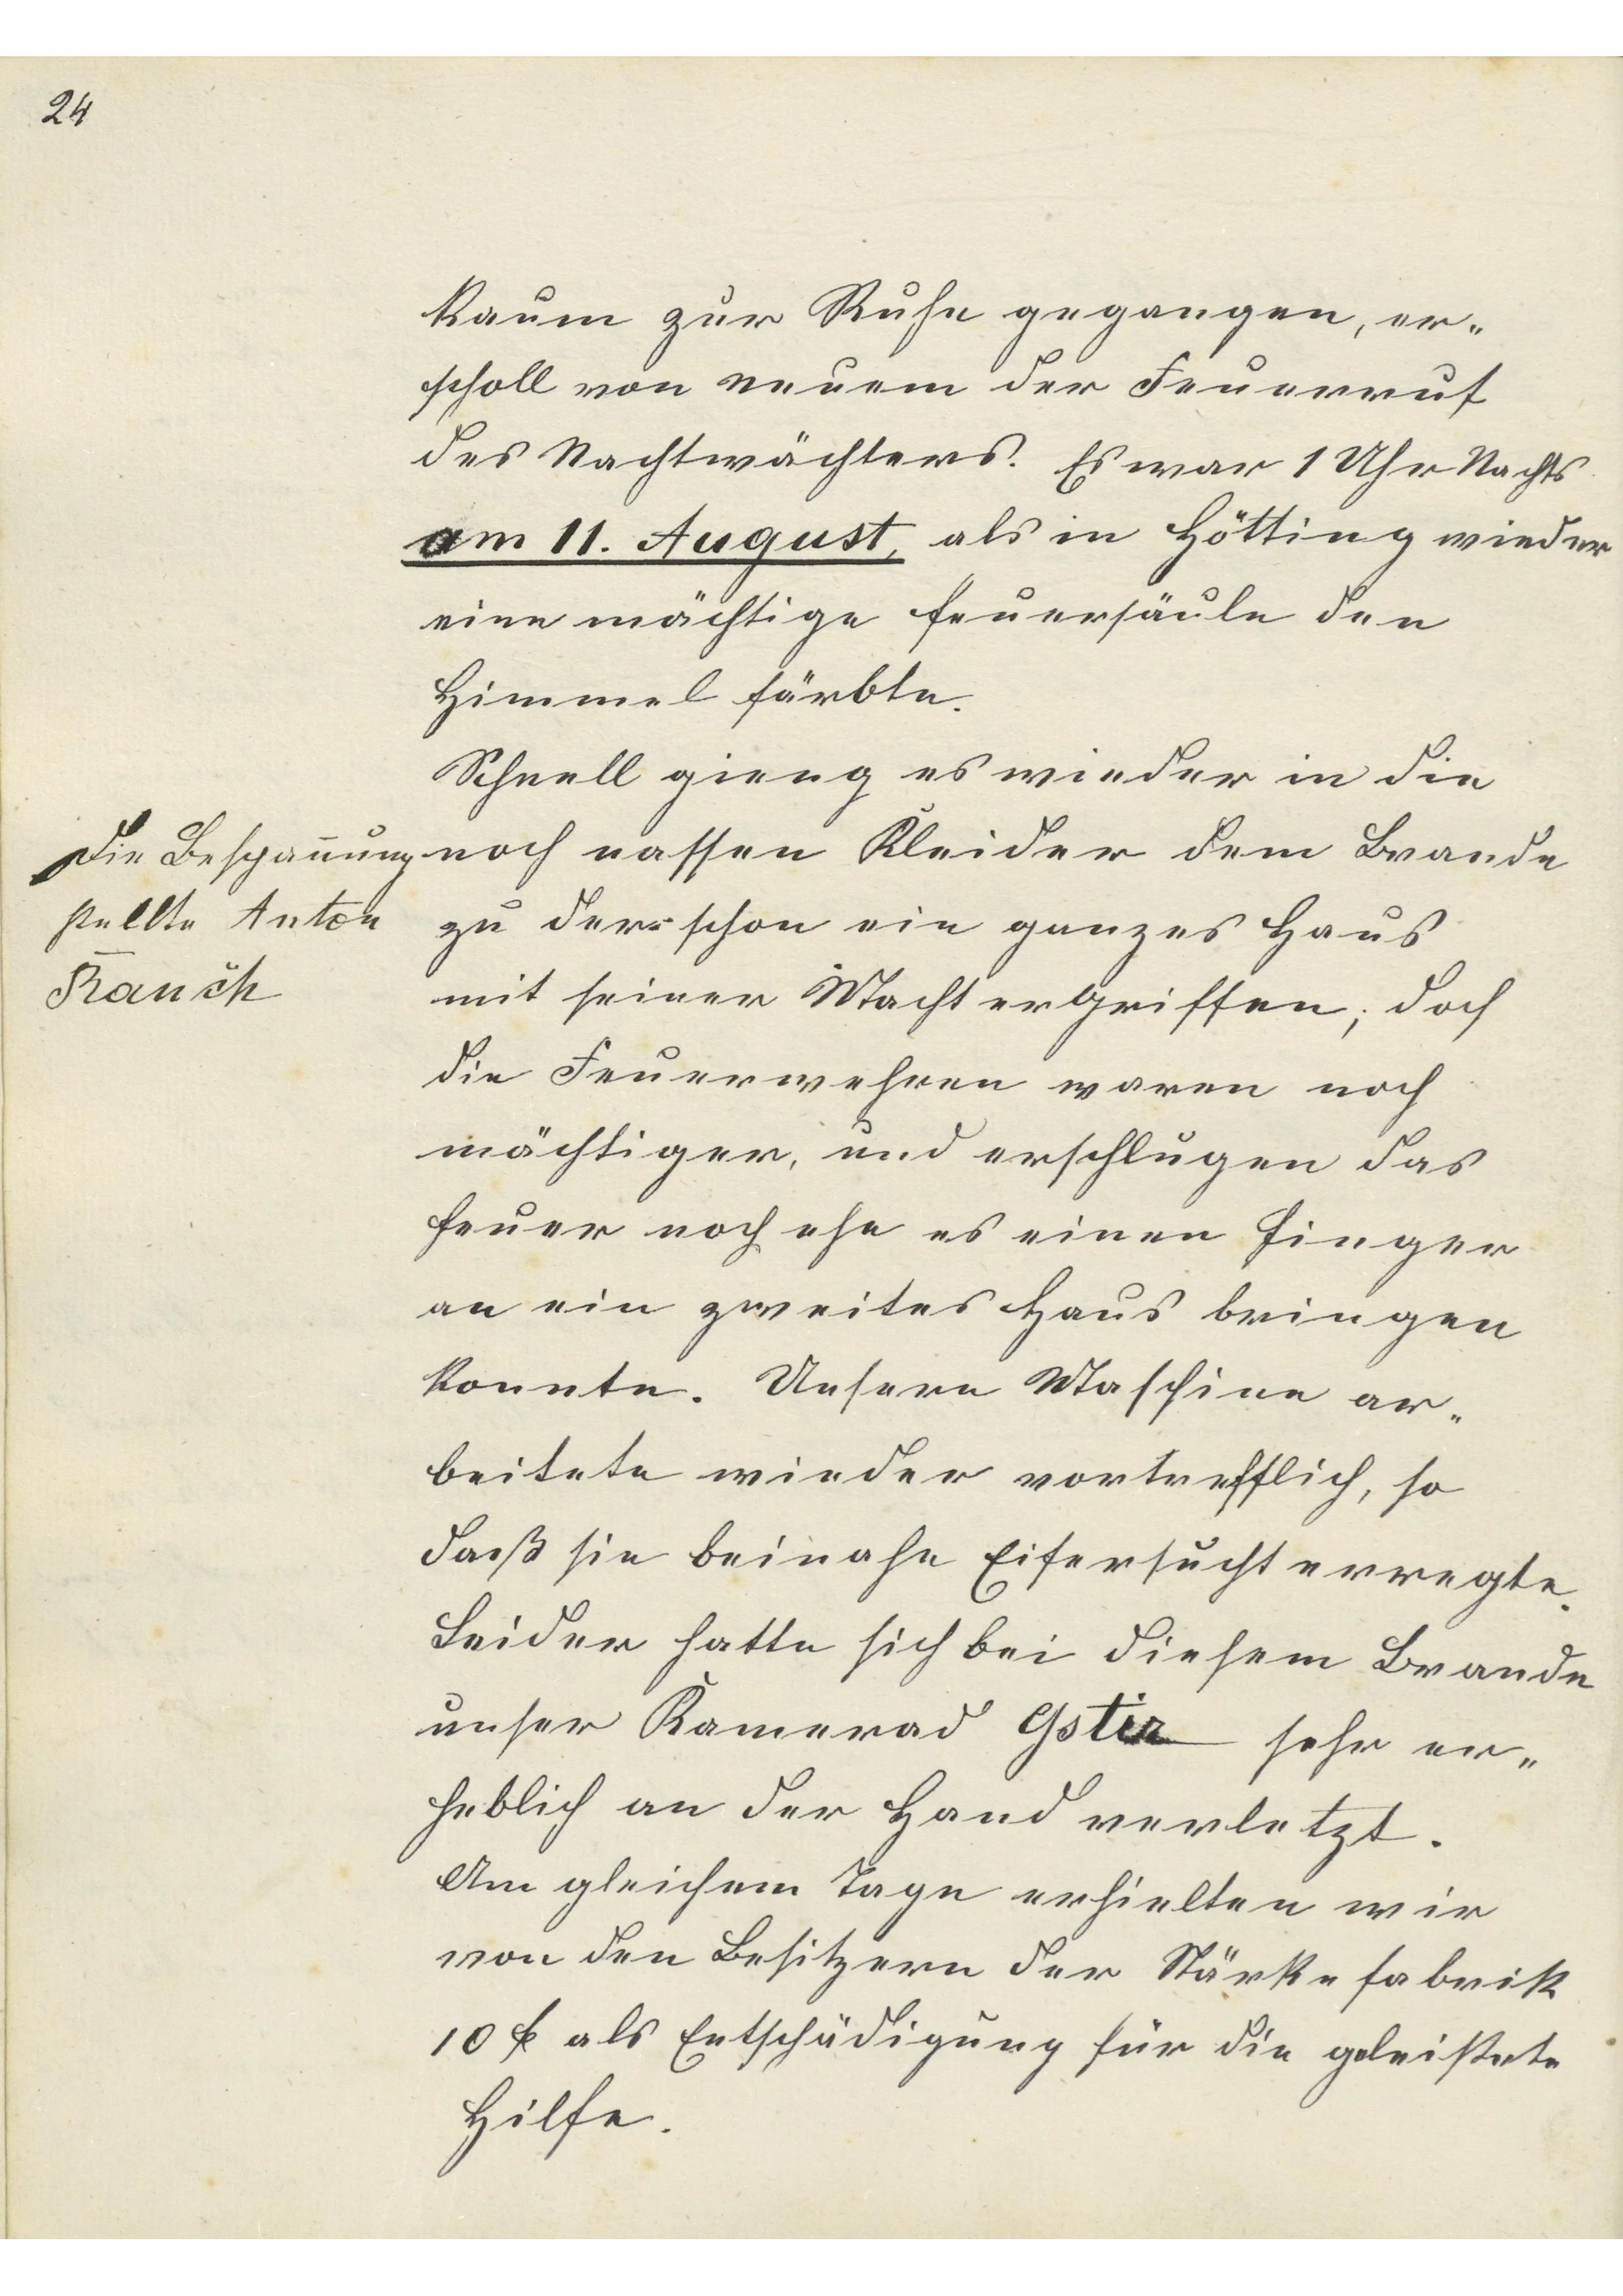 24
Kaum zur Ruhe gegangen, er„
scholl von neuem der Feuerruf
des Nachtwächters. Es war 1 Uhr Nachts
am 11. August, als in Hötting wieder
eine mächtige Feuersäule den
Himmel färbte.
Schnell gieng es wieder in die
noch nassen Kleider dem Brande
zu der schon ein ganzes Haus
mit seiner Macht ergriffen; doch
die Feuerwehren waren noch
mächtiger, und erschlugen das
Feuer noch ehe es einen Finger
an ein zweites Haus bringen
konnte. Unsere Maschine ar„
beitete wieder vortrefflich, so
daß sie beinahe Eifersucht erregte.
Leider hatte sich bei diesem Brande
unser Kamerad Gstir sehr er„
heblich an der Hand verletzt.
Am gleichem Tage erhielten wir
von den Besitzern der Stärkefabrik
10 f als Entschädigung für die geleistete
Hilfe.
Die Bespannung
stellte Anton
Rauch